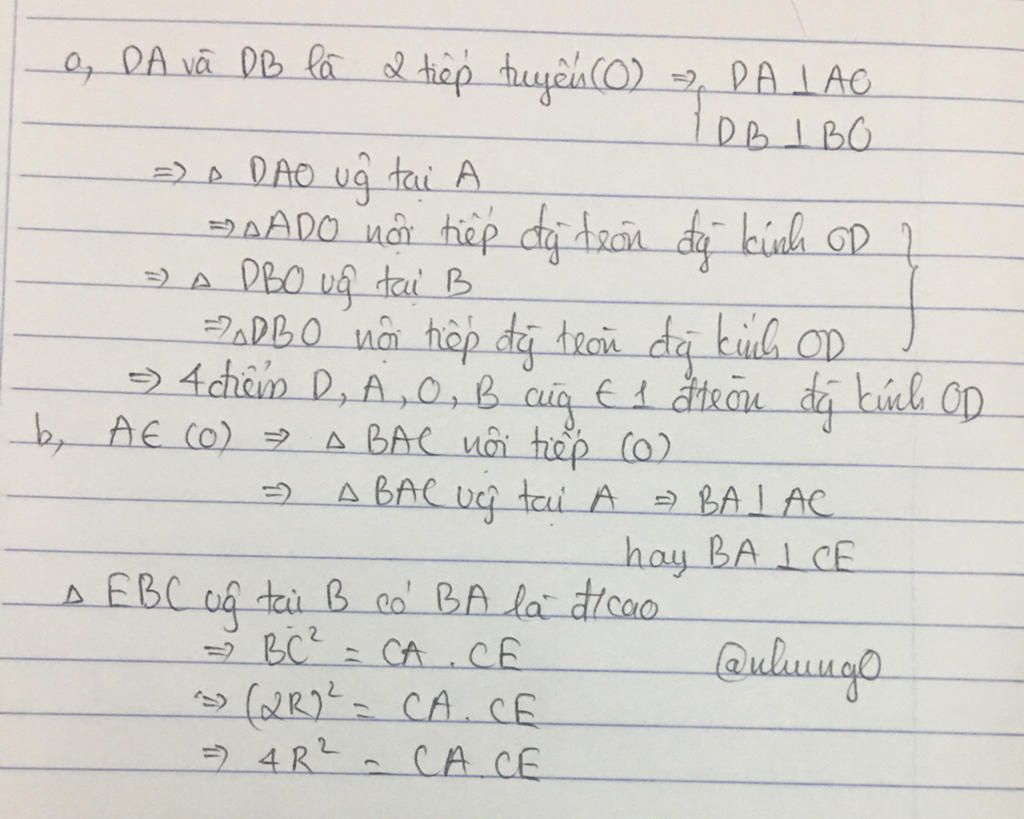 a, DA và DB là 2 tiếp tuyến (O) => { DA ⊥ AO
DB ⊥ BO
=> △ DAO vg̃ tại A
=> △ADO nội tiếp đg̃ tròn đg̃ kính OD }
=> △ DBO vg̃ tại B
=> △DBO nội tiếp đg̃ tròn đg̃ kính OD
=> 4 điểm D, A, O, B cùg ∈ 1 đtròn đg̃ kính OD
b, A ∈ (O) => △ BAC nội tiếp (O)
=> △ BAC vg̃ tại A => BA ⊥ AC
hay BA ⊥ CE
△ EBC vg̃ tại B có BA là đ/cao
=> BC² = CA . CE
@nhung0
=> (2R)² = CA . CE
=> 4R² = CA . CE